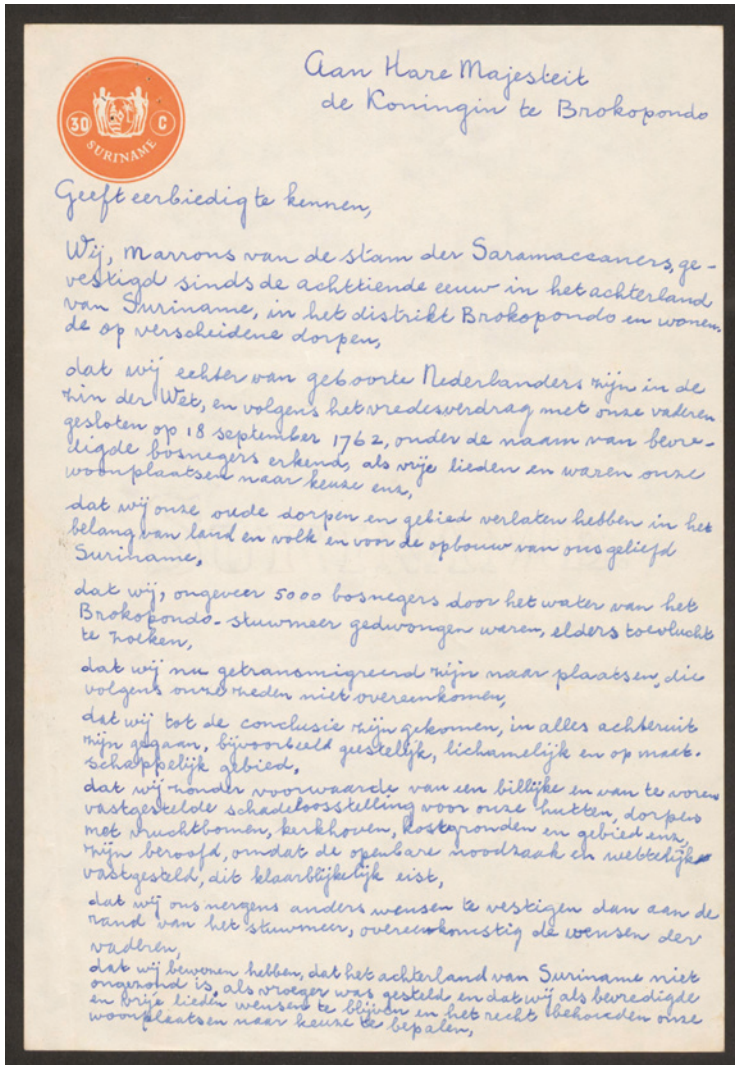 Aan Hare Majesteit
de Koningin te Brokopondo
30 C
SURINAME
Geeft eerbiedig te kennen,
Wij, Marrons van de stam der Saramaccaners, ge-
vestigd sinds de achttiende eeuw in het achterland
van Suriname, in het distrikt Brokopondo en wonen-
de op verscheidene dorpen,
dat wij echter van geboorte Nederlanders zijn in de
zin der Wet, en volgens het vredesverdrag met onze vaderen
gesloten op 18 september 1762, onder de naam van bevre-
digde bosnegers erkend, als vrije lieden en waren onze
woonplaatsen naar keuze enz,
dat wij onze oude dorpen en gebied verlaten hebben in het
belang van land en volk en voor de opbouw van ons geliefd
Suriname,
dat wij, ongeveer 5000 bosnegers door het water van het
Brokopondo-stuwmeer gedwongen waren, elders toevlucht
te zoeken,
dat wij nu getransmigreerd zijn naar plaatsen, die
volgens onze zeden niet overeenkomen,
dat wij tot de conclusie zijn gekomen, in alles achteruit
zijn gegaan, bijvoorbeeld geestelijk, lichamelijk en op maat-
schappelijk gebied,
dat wij zonder voorwaarde van een billijke en van te voren
vastgestelde schadeloosstelling voor onze hutten, dorpen
met vruchtbomen, kerkhoven, kostgronden en gebied enz,
zijn beroofd, omdat de openbare noodzaak en wettelijk
vastgesteld, dit klaarblijkelijk eist,
dat wij ons nergens anders wensen te vestigen dan aan de
rand van het stuwmeer, overeenkomstig de wensen der
vaderen,
dat wij bewezen hebben, dat het achterland van Suriname niet
ongezond is, als vroeger was gesteld en dat wij als bevredigde
en vrije lieden wensen te blijven en het recht behouden onze
woonplaatsen naar keuze te bepalen,